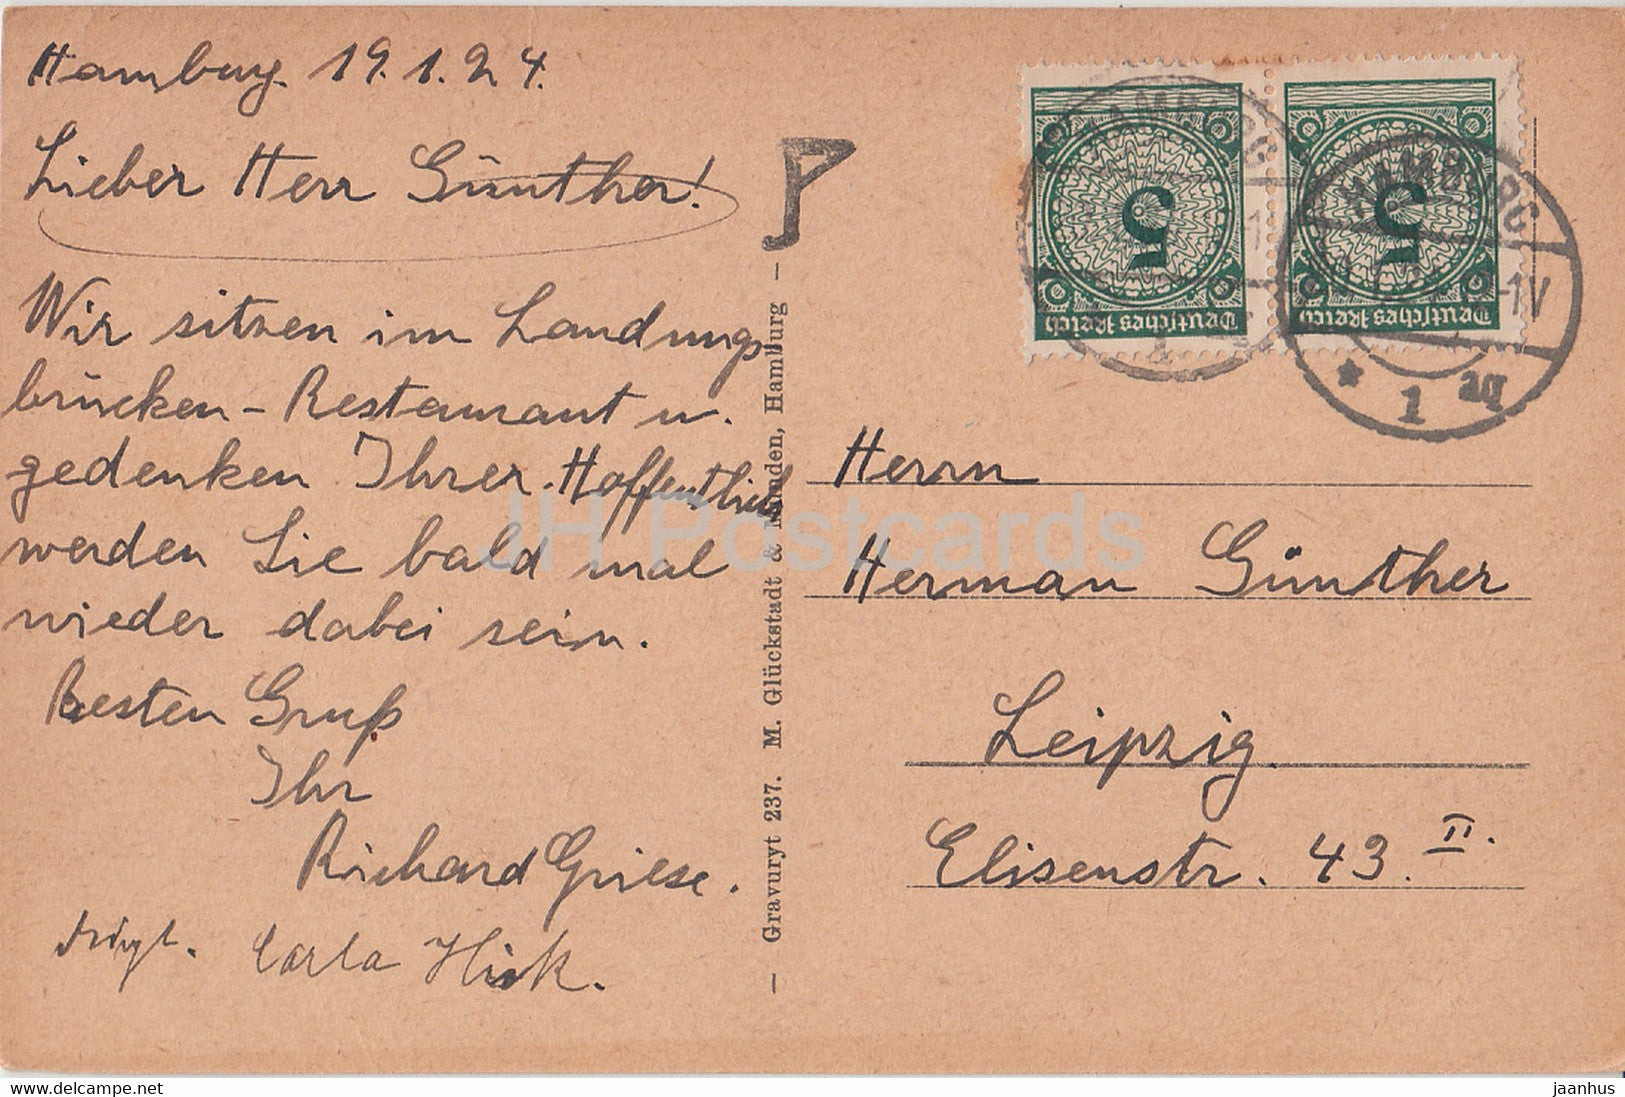 Hamburg. 19.1.24.
Lieber Herr Günther!
Wir sitzen im Landungs-
brücken-Restaurant u.
gedenken Ihrer. Hoffentlich
werden Sie bald mal
wieder dabei sein.
Besten Gruß
Ihr
Richard Griese.
Carla
- Gravuryt 237. M. Glückstadt & Münden, Hamburg -
Deutsches Reich
5
Deutsches Reich
5
HAMBURG
* 1
Herrn
Herman Günther
Leipzig.
Elisenstr. 43. II.
JH Postcards
www.delcampe.net
jaanhus